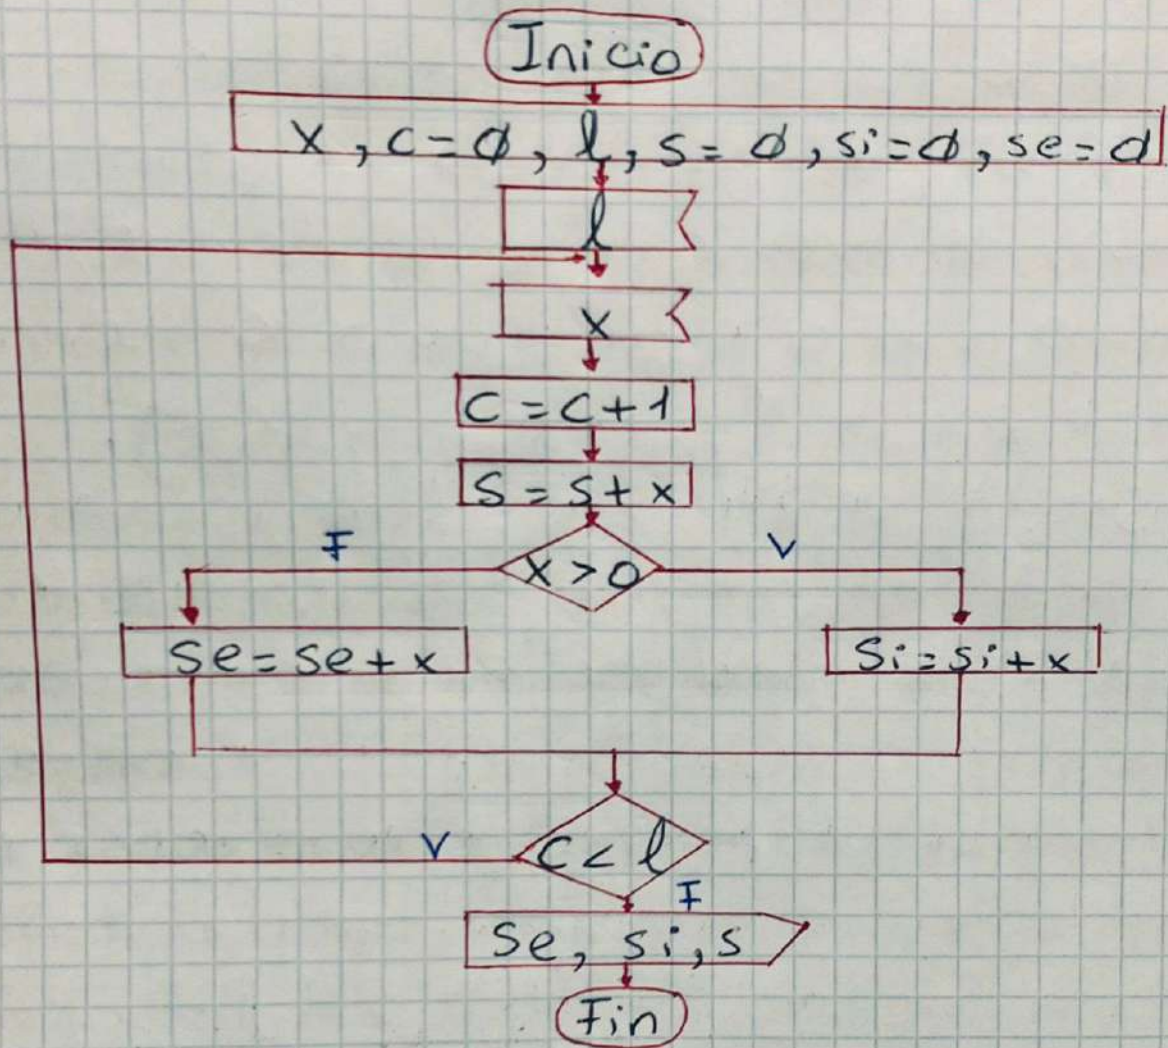 Inicio
x, c=0, l, s=0, si=0, se=0
l
x
c=c+1
s=s+x
F
x>0
V
se=se+x
si=si+x
V
c<l
F
se, si, s
Fin